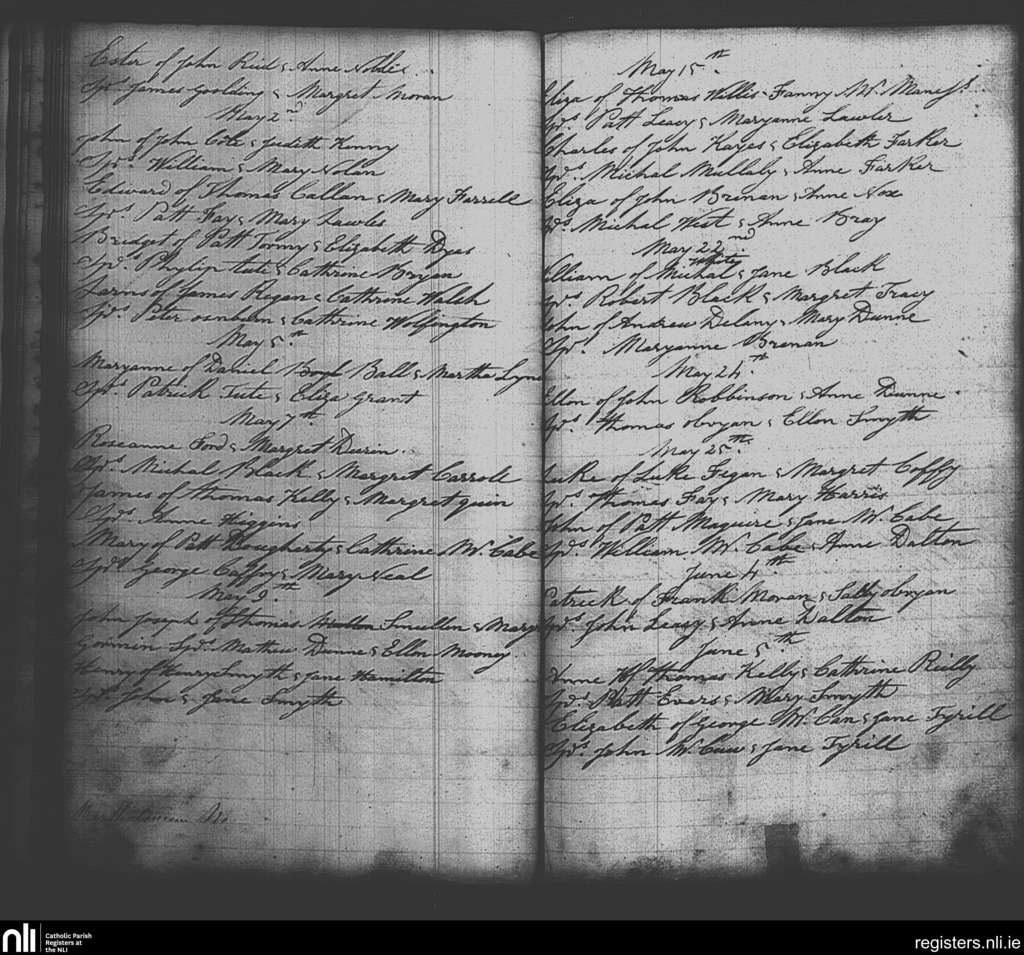 Ester of John Reid & Anne Noble
Sps. James Goolding & Margret Moran
May 2nd
John of John Cole & Judith Kenny
Sps. William & Mary Nolan
Edward of Thomas Callan & Mary Farrell
Sps. Patt Fay & Mary Lawles
Bridget of Patt Tormy & Elizabeth Dyas
Sps. Phylip Tute & Cathrine Bryan
of James Regan & Cathrine Walsh
Sps. Peter & Cathrine Wolfington
May 5th
Maryanne of Daniel Ball & Martha Lyne
Sps. Patrick Tute & Eliza Grant
May 7th
Roseanne Ford & Margret
Sps. Michal Black & Margret Carroll
James of Thomas Kelly & Margret quin
Sps. Anne Higgins
Mary of Patt Dougherty & Cathrine Mc. Cabe
Sps. George Caffry & Mary Neal
May 9th
John Joseph of Thomas Smullen & Mary
Gormin Sps. Mathew Dunne & Ellen Mooney
Henry of Henry Smyth & Jane Hamilton
Sps. John & Jane Smyth
May 15th
Eliza of Thomas Willis & Fanny Mc. Maness
Sps. Patt Leavy & Maryanne Lawler
Charles of John Kayes & Elizabeth Farker
Sps. Michal Mullaly & Anne Farker
Eliza of John Brenan & Anne Nox
Sps. Michal West & Anne Bray
May 22nd
William of Michal Whity & Jane Black
Sps. Robert Black & Margret Tracy
John of Andrew Delany & Mary Dunne
Sps. Maryanne Brenan
May 24th
Ellen of John Robbinson & Anne Dunne
Sps. Thomas obryan & Ellen Smyth
May 25th
Luke of Luke Fegan & Margret Coffy
Sps. Thomas Fay & Mary Harris
John of Patt Maguire & Jane Mc. Cabe
Sps. William Mc. Cabe & Anne Dalton
June 4th
Patrick of Frank Moran & Sally obryan
Sps. John Leavy & Anne Dalton
June 5th
Anne of Thomas Kelly & Cathrine Reilly
Sps. Patt Evers & Mary Smyth
Elizabeth of George Mc. Can & Jane Tyrill
Sps. John Mc. & Jane Tyrill
nli
Catholic Parish
Registers at
the NLI
registers.nli.ie